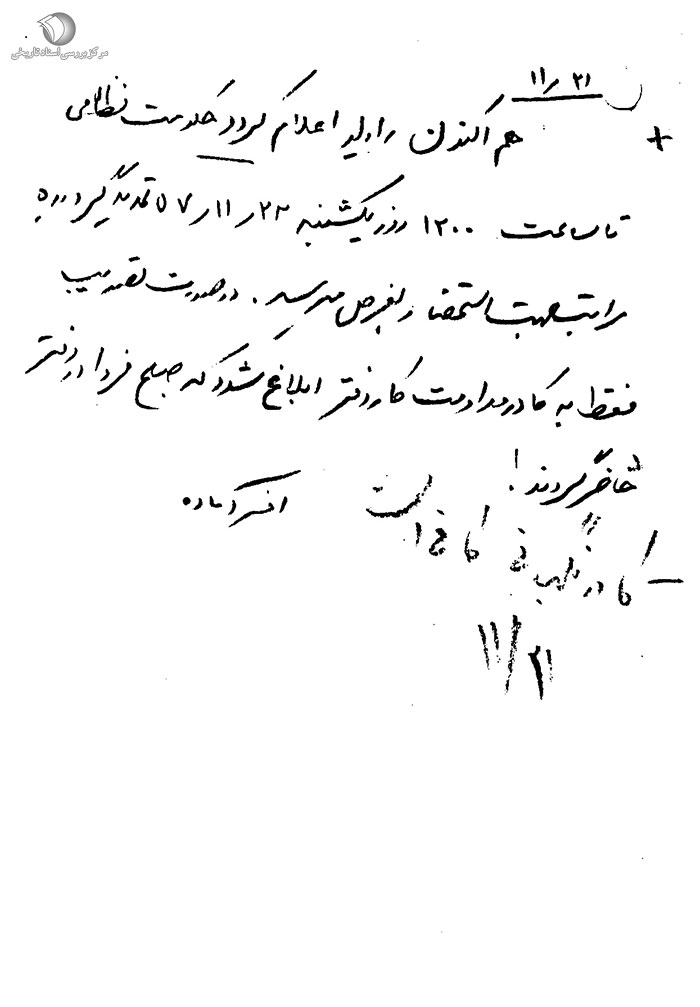 مرکز بررسی اسناد تاریخی
۲۱ ر ۱۱
+ هم اکنون رادیو اعلام کرد حکومت نظامی
تا ساعت ۱۲۰۰ روز یکشنبه ۲۲ ر ۱۱ ر ۵۷ تمدید گردیده
مراتب جهت استحضار بعرض میرسد. در صورت تصویب
فقط به کادر مداومت کار دفتر ابلاغ شود که صبح فردا در دفتر
حاضر گردند!
افسر آماده
- کادر نگهبانی کافی است
۲۱/۱۱